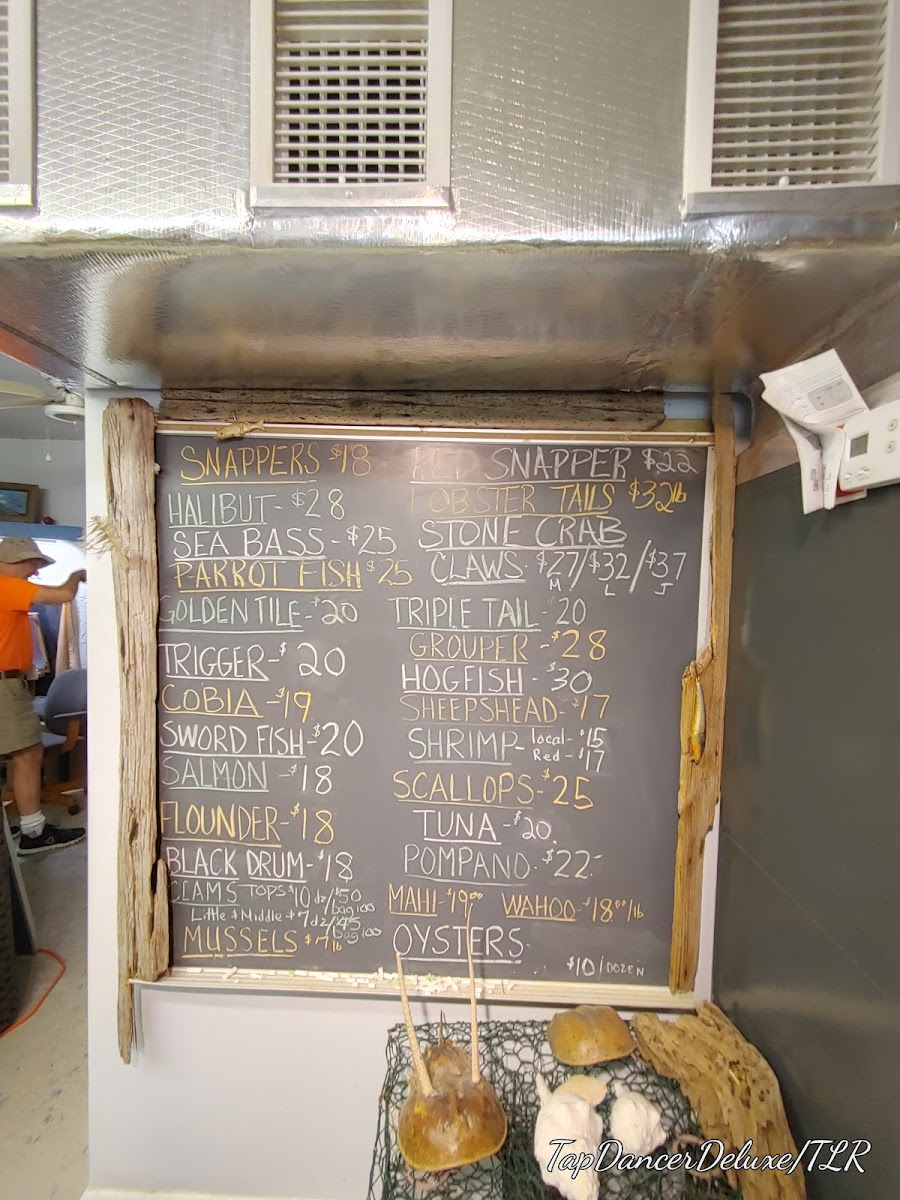 SNAPPERS $18
HALIBUT - $28
SEA BASS - $25
PARROT FISH $25
GOLDEN TILE - $20
TRIGGER - $20
COBIA - $19
SWORD FISH - $20
SALMON - $18
FLOUNDER - $18
BLACK DRUM - $18
CLAMS TOPS $10 dz/$50 bag 100
Little & Middle $7 dz/$45 bag 100
MUSSELS $7 lb
RED SNAPPER $22
LOBSTER TAILS $32 lb
STONE CRAB
CLAWS $27/$32/$37
M L J
TRIPLE TAIL - 20
GROUPER - $28
HOGFISH - $30
SHEEPSHEAD - $17
SHRIMP - local - $15
Red - $17
SCALLOPS - $25
TUNA - $20
POMPANO - $22
MAHI - $19.00 WAHOO - $18.00/lb
OYSTERS
$10/DOZEN
TapDancerDeluxe/TLR